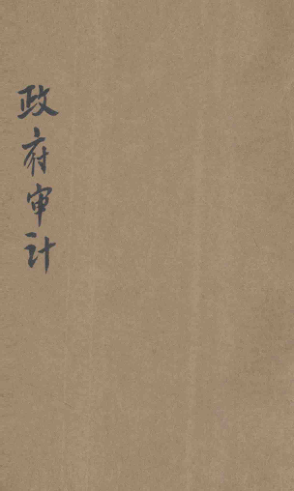 政府审计